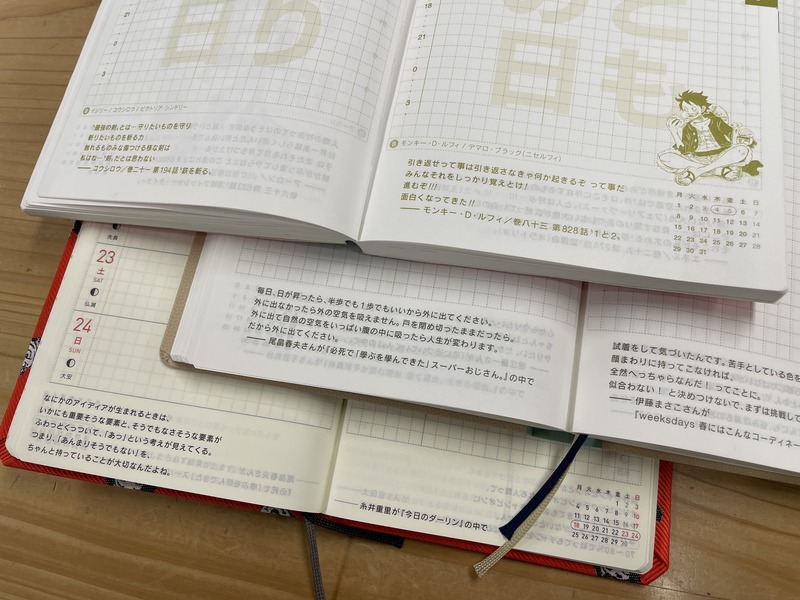 21
0
3
イジリー/コウシロウ/ビクトリア・シンドリー
"最強の剣"とは…守りたいものを守り
斬りたいものを斬る力
触れるものみな傷つける様な剣は
私はな…"剣"だとは思わない
── コウシロウ/巻二十一 第194話"鉄を斬る"
18
21
0
3
ども
の日
モンキー・D・ルフィ/デマロ・ブラック(ニセルフィ)
引き返せって事は引き返さなきゃ何か起きるぞ って事だ
みんなそれをしっかり覚えとけ!
進むぞ!!!
面白くなってきた!!
── モンキー・D・ルフィ/巻八十三 第828話"1と2"
月 火 水 木 金 土 日
1 2 3 4 5 6 7
8 9 10 11 12 13 14
15 16 17 18 19 20 21
22 23 24 25 26 27 28
29 30 31
毎日、日が昇ったら、半歩でも1歩でもいいから外に出てください。
外に出なかったら外の空気を吸えません。戸を閉め切ったままだったら。
外に出て自然の空気をいっぱい腹の中に吸ったら人生が変わります。
だから外に出てください。
── 尾畠春夫さんが『必死で「学ぶを学んできた」スーパーおじさん。』の中で
試着をして気づいたんです。苦手としている色を
顔まわりに持ってこなければ、
全然へっちゃらなんだ! ってことに。
似合わない! と決めつけないで、まずは挑戦して
── 伊藤まさこさんが
『weeksdays 春にはこんなコーディネー
先負
23
土
SAT
仏滅
24
日
SUN
大安
なにかのアイディアが生まれるときは、
いかにも重要そうな要素と、そうでもなさそうな要素が
ふわっとくっついて、「あっ」という考えが見えてくる。
つまり、「あんまりそうでもない」を、
ちゃんと持っていることが大切なんだよね。
── 糸井重里が『今日のダーリン』の中で
月 火 水 木 金 土 日
1 2 3
4 5 6 7 8 9 10
11 12 13 14 15 16 17
18 19 20 21 22 23 24
25 26 27 28 29 30